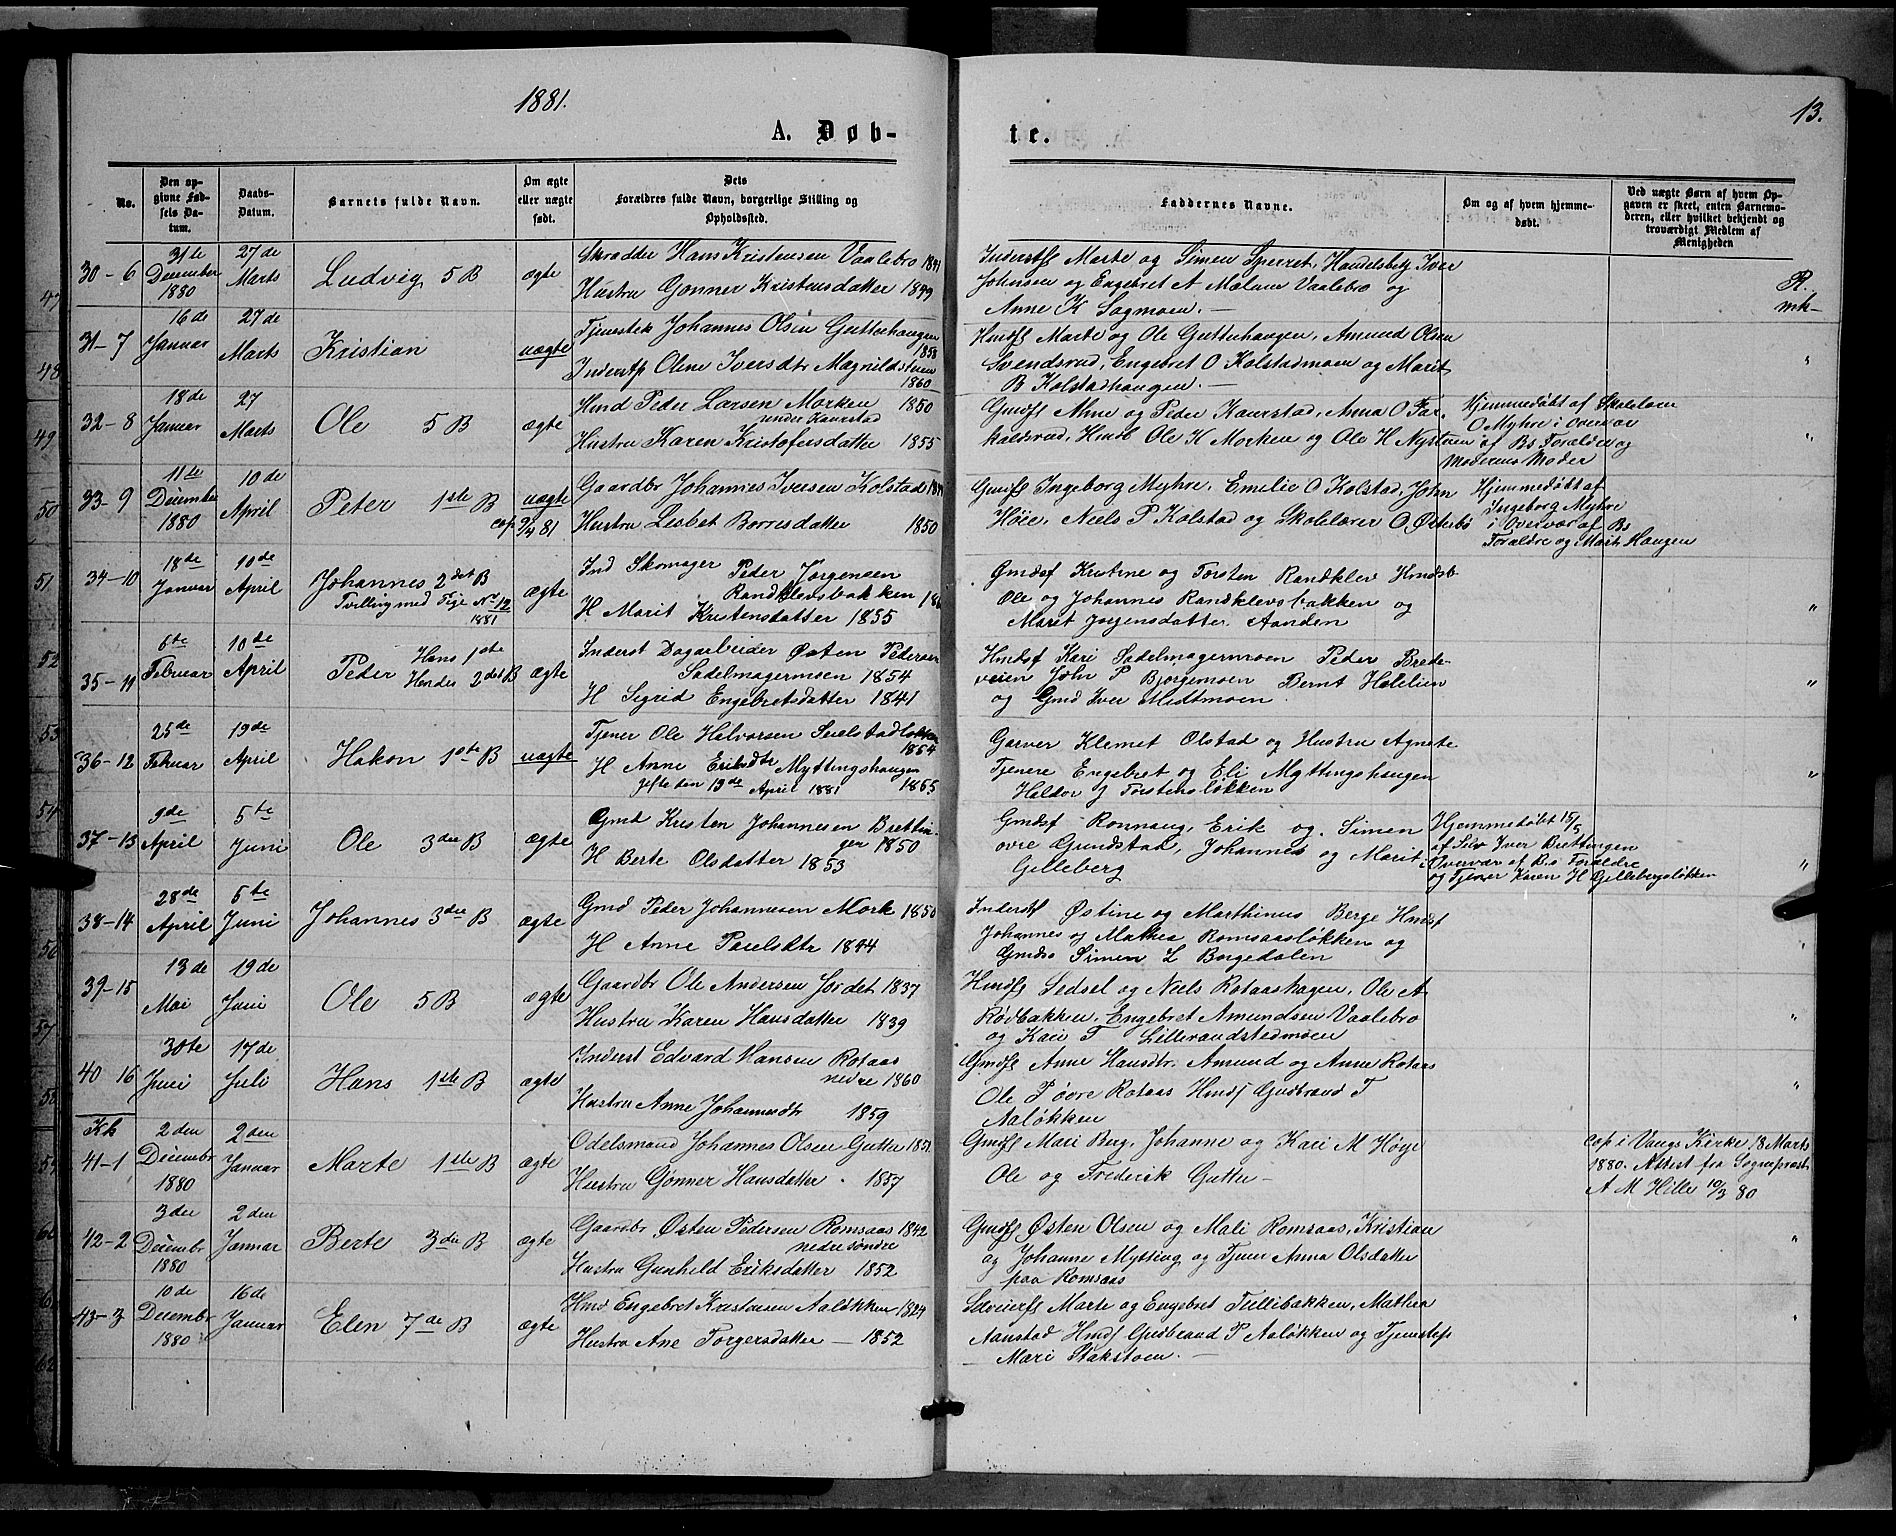 1881.
13.
A. Døb-
te.
No.
Den op-
givne Fød-
sels Da-
tum.
Daabs-
Datum.
Barnets fulde Navn.
Om ægte
eller uægte
født.
Dets
Forældres fulde Navn, borgerlige Stilling og
Opholdssted.
Faddernes Navne.
Om og af hvem hjemme-
døbt.
Ved uægte Børn af hvem Op-
gaven er skeet, enten Barnemo-
deren, eller hvilket bekjendt og
troværdigt Medlem af
Menigheden
30-6
31te
December
1880
27de
Marts
Ludvig 5 B
ægte
Skrædder Hans Kristensen Vaalebro 1841
Hustru Gønner Kristensdatter 1849
Inderstfs Marte og Simen Sperret, Handelsbetj Iver
Johnsen og Engebret A Mælum Vaalebro og
Anne K Sagmoen. —
R.
mk-
31-7
16de
Januar
27de
Marts
Kristian
uægte
Tjenestek Johannes Olsen Gutterhaugen
1858
Inderstp Oline Iversdtr Magnildstuen
1860
Hmdfs Marte og Ole Gutterhaugen, Amund Olsen
Svendsrud, Engebret O Kolstadmoen og Marit
B Kolstadhaugen. —
"
32-8
18de
Januar
27
Marts
Ole 5 B
ægte
Hmd Peder Larsen Morken 1850
under Kaurstad
Hustru Karen Kristofersdatter 1855
Gmdfs Ahne og Peder Kaurstad, Anna O For-
kalsrud, Hmdb Ole K Morken og Ole H Nystuen
Hjemmedøbt af Skolelærer
O Myhre i Overvær
af Bs Forældre og
Moderens Moder
"
33-9
11te
December
1880
10de
April
Peter 1ste B
cop 9/4 81
uægte
Gaardbr Johannes Iversen Kolstad
Hustru Lisbet Børresdatter 1850
Gmdfs Ingeborg Myhre, Emilie O Kolstad, John
Høie, Niels P Kolstad og Skolelærer O Østerbø
Hjemmedøbt af
Ingeborg Myhre
i Overvær af Bs
Forældre og Marit Haugen
34-10
18de
Januar
10de
April
Johannes 2det B
Tvilling med Pige No 12
1881
ægte
Ind Skomager Peder Jørgensen
Randklevsbakken
H Marit Kristensdatter 1855
Gmdsf Kristine og Torsten Randklev Hmdsb
Ole og Johannes Randklevsbakken og
Marit Jørgensdatter Aanden
"
35-11
6te
Februar
10de
April
Peder Hans 1ste
Hendes 2det B
ægte
Inderst Dagarbeider Østen Pedersen
Sadelmagermoen 1854
H Sigrid Engebretsdatter 1841
Hmdsf Kari Sadelmagermoen Peder Brede-
veien John P Bjørgemoen Bernt Holelien
og Gmd Iver Midtmoen
"
36-12
25de
Februar
19de
April
Hakon 1ste B
uægte
Tjener Ole Halvorsen Sielstadløkken
1854
H Anne Eriksdtr Myttingshaugen
gifte den 19de April 1881 1855
Garver Klemet Olstad og Hustru Agnete
Tjenere Engebret og Eli Myttingshaugen
Haldor J Torstensløkken
"
37-13
9de
April
5te
Juni
Ole 3die B
ægte
Gmd Kristen Johannesen Brettin-
gen 1850
H Berte Olsdatter 1853
Gmdsf Rønnaug, Erik og Simen
øvre Grundstad, Johannes og Marit
Gilleberg
Hjemmedøbt 15/5
af Siv Iver Brettingen
i Overvær af Bs Forældre
og Tjener Karen H Gillebergsløkken
"
38-14
28de
April
5te
Juni
Johannes 3die B
ægte
Gmd Peder Johannesen Mork 1850
H Anne Paulsdtr 1844
Inderstf Østine og Marthinus Berge Hmdsf
Johannes og Mathea Romsaasløkken og
Gmdsø Simen L Borgedalen
"
39-15
13de
Mai
19de
Juni
Ole 5 B
ægte
Gaardbr Ole Andersen Jordet 1837
Hustru Karen Hansdatter 1839
Hmdfs Sedsel og Niels Rotaashagen, Ole A
Rødbakken, Engebret Amundsen Vaalebro
og Kari T Lillerandstedmoen
"
40 16
30te
Juni
17de
Juli
Hans 1ste B
ægte
Inderst Edvard Hansen Rotaas
nedre 1860
Hustru Anne Johannesdtr 1859
Gmdfs Anne Hansdtr. Amund og Anne Rotaas
Ole P øvre Rotaas Hmdf Gudbrand T
Aaløkken
"
Kk
41-1
2den
Decembr
1880
2den
Januar
Marte 1ste B
ægte
Odelsmand Johannes Olsen Guttu 1851
Hustru Gønner Hansdatter 1857
Gmdfs Mari Berg, Johanne og Kari M Høye
Ole og Frederik Guttu —
cop i Vangs Kirke 18 Marts
1880. Attest fra Sognepræst
A M Hille 19/3 80
42-2
3die
Decembr
1880
2den
Januar
Berte 3die B
ægte
Gaardbr Østen Pedersen Romsaas 1842
nedre søndre
Hustru Gunhild Eriksdatter 1852
Gmdfs Østen Olsen og Mali Romsaas, Kristian
og Johanne Mytting og Tjener Anna Olsdatter
paa Romsaas
"
43-3
10de
Decembr
1880
16de
Januar
Elen 7de B
ægte
Hmd Engebret Kristensen Aaløkken 1824
Hustru Ane Torgersdatter — 1852
Marte og Engebret Tullibakken, Mathea
Aanstad Hmdf Gudbrand P Aaløkken og Tjenestep
Mari Stakstoen. —
"